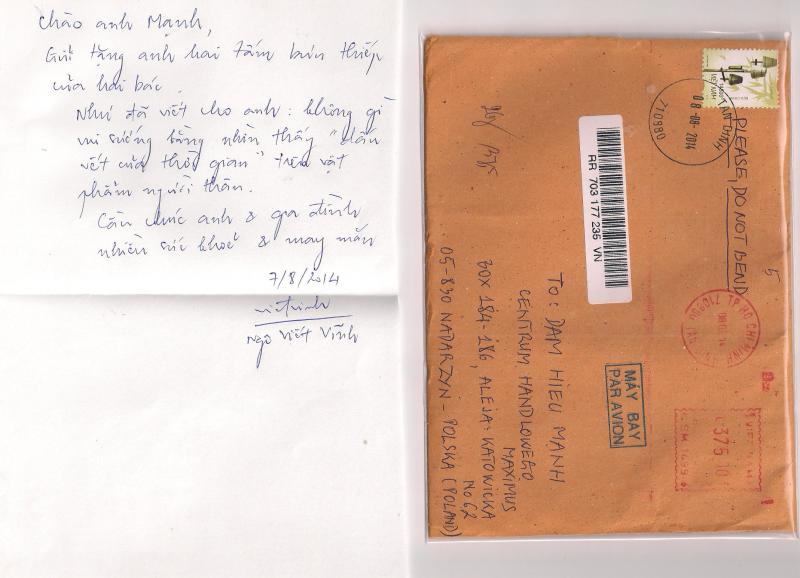 Chào anh Mạnh,
Gửi tặng anh hai tấm bưu thiếp
của hai bác.
Như đã viết cho anh: không gì
vui sướng bằng nhìn thấy "dấu
vết của thời gian" trên vật
phẩm người thân.
Cầu chúc anh & gia đình
nhiều sức khoẻ & may mắn
7/8/2014
Ngô Viết Vĩnh
VIETNAM
TAN DINH
08-08-2014
710980
PLEASE, DO NOT BEND
5
RR 703 177 235 VN
TP HO CHI MINH
MÁY BAY
PAR AVION
375 10
To: DAM HIEU MANH
CENTRUM HANDLOWEGO
MAXIMUS
BOX 184-186, ALEJA: KATOWICKA
No 62
05-830 NADARZYN - POLSKA (POLAND)